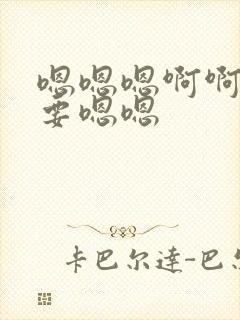 嗯嗯嗯啊啊
要嗯嗯
卡巴尔達-巴尔